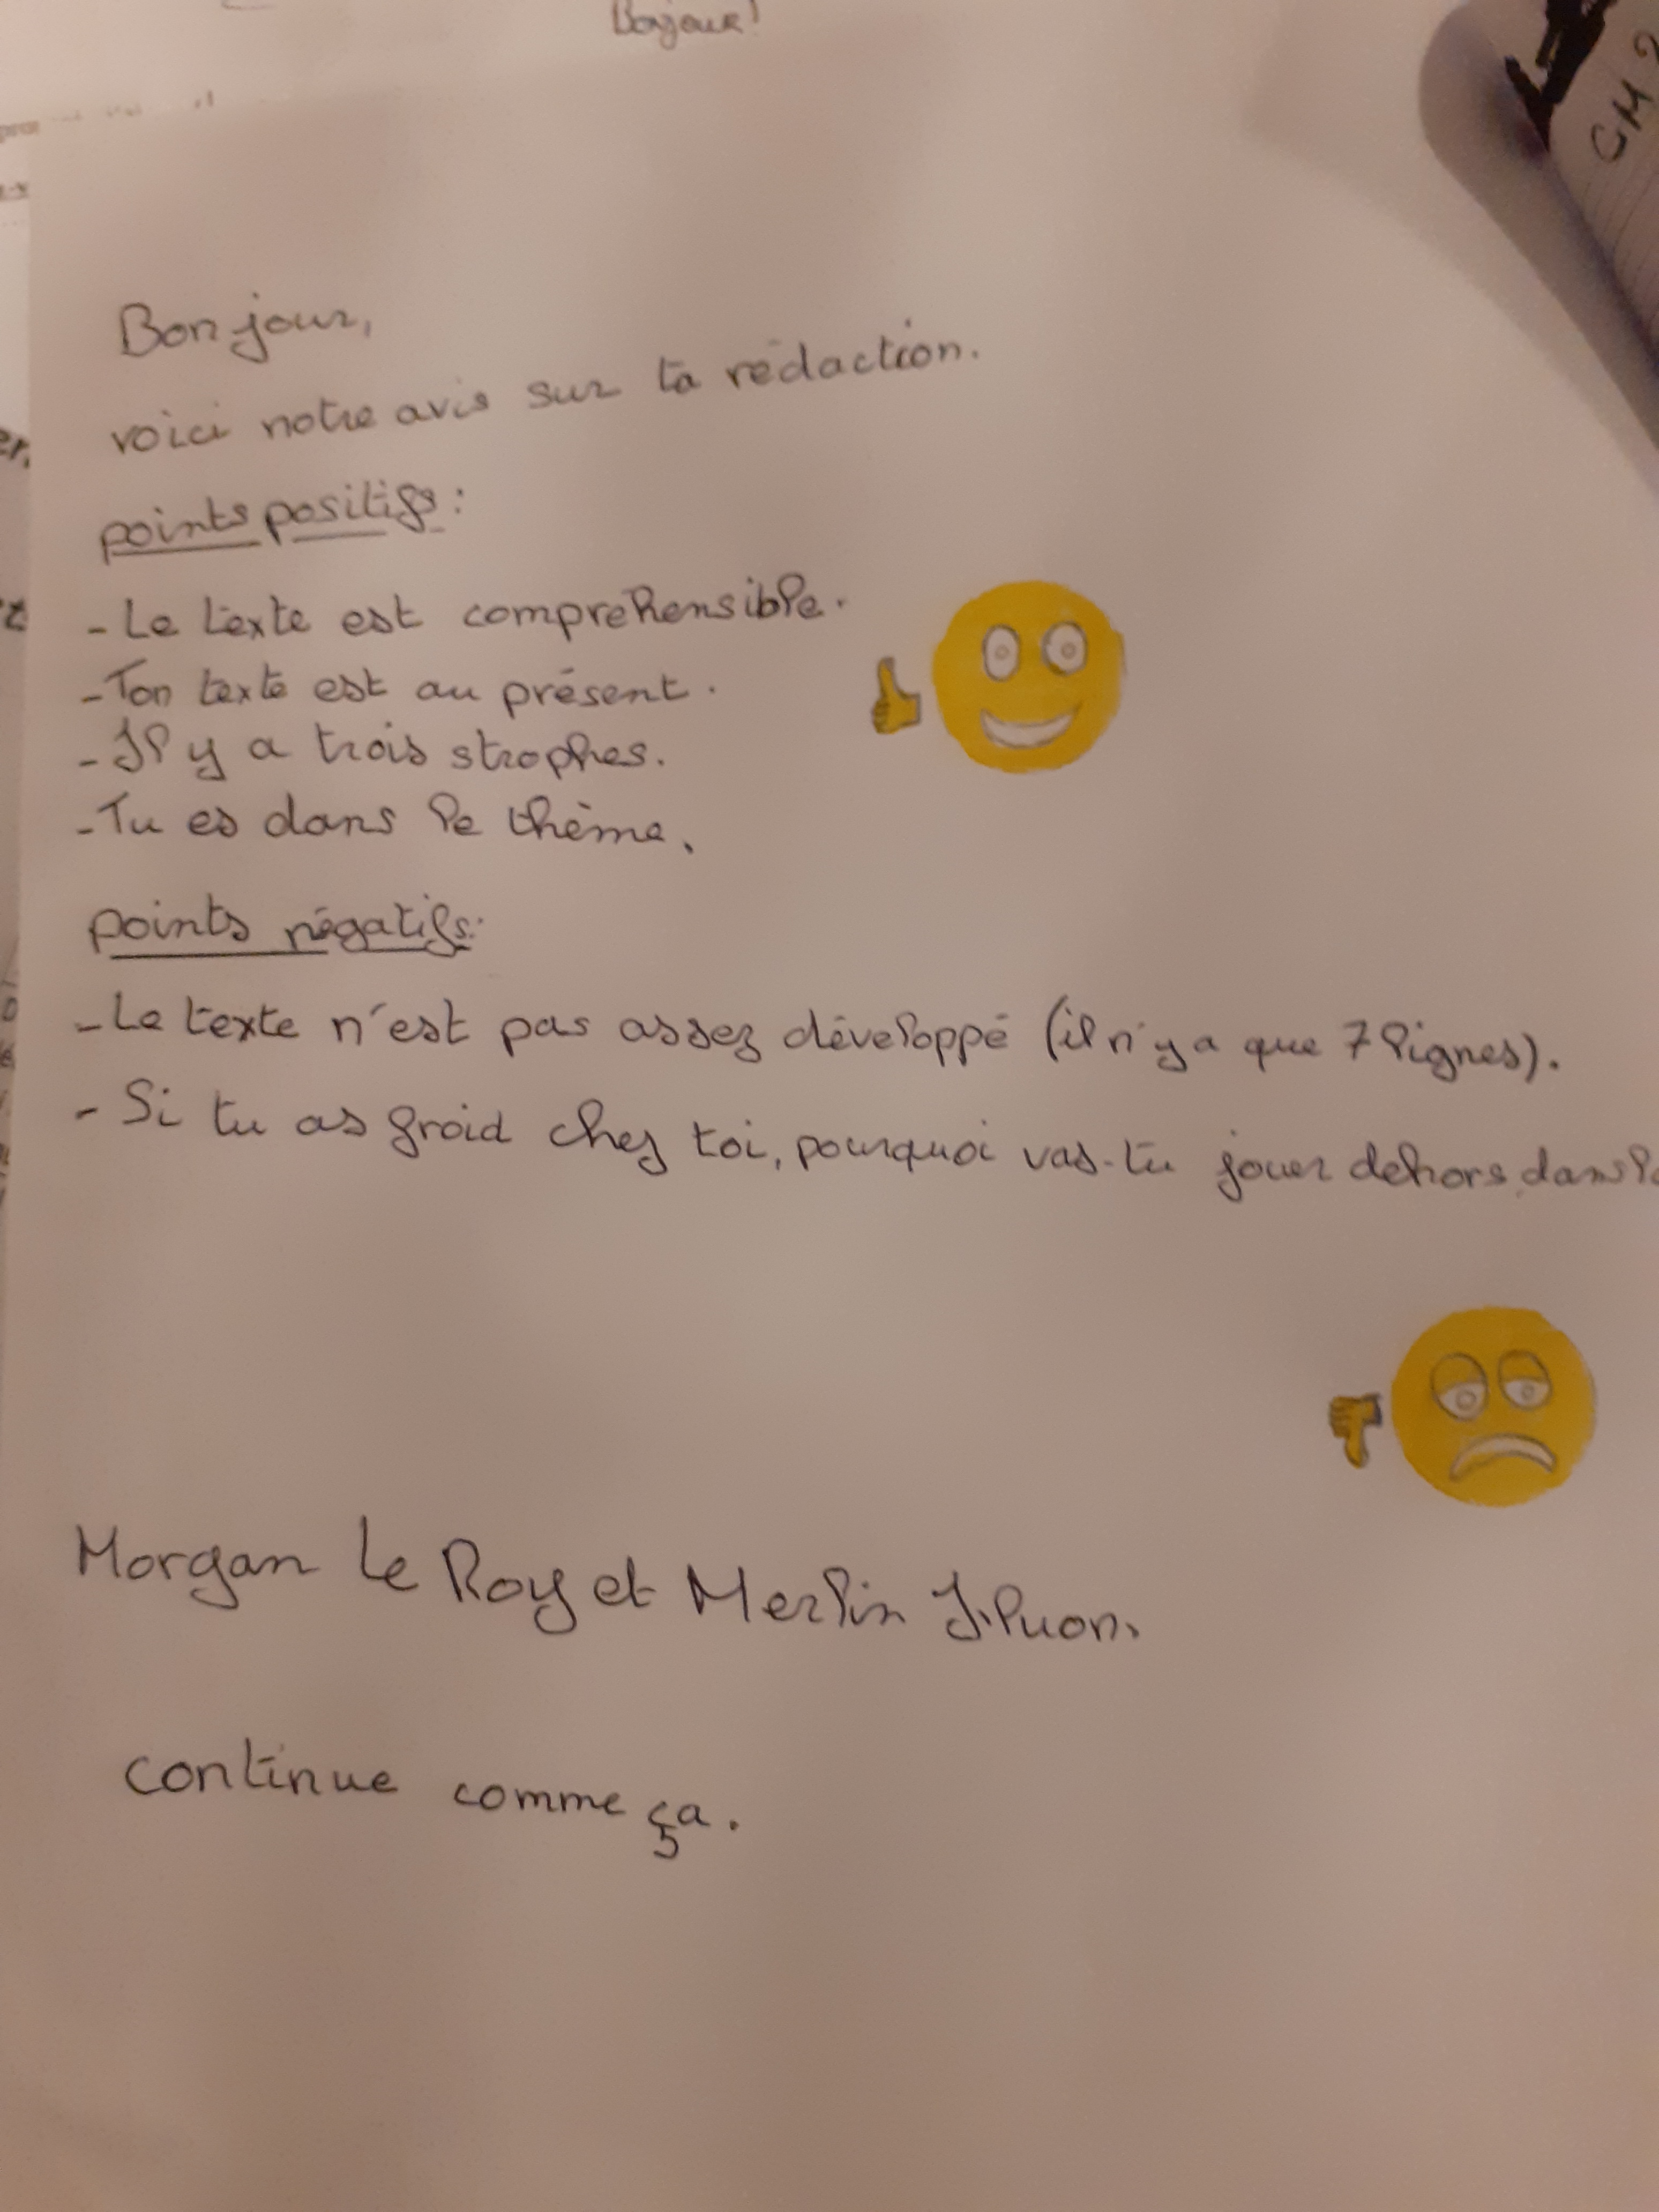 Bonjour!
CM2
Bonjour,
voici notre avis sur ta rédaction.
points positifs:
- Le texte est compréhensible.
- Ton texte est au présent.
- Il y a trois strophes.
- Tu es dans le thème.
points négatifs:
- Le texte n'est pas assez développé (il n'y a que 7 lignes).
- Si tu as froid chez toi, pourquoi vas-tu jouer dehors, dans
Morgan Le Roy et Merlin
continue comme ça.